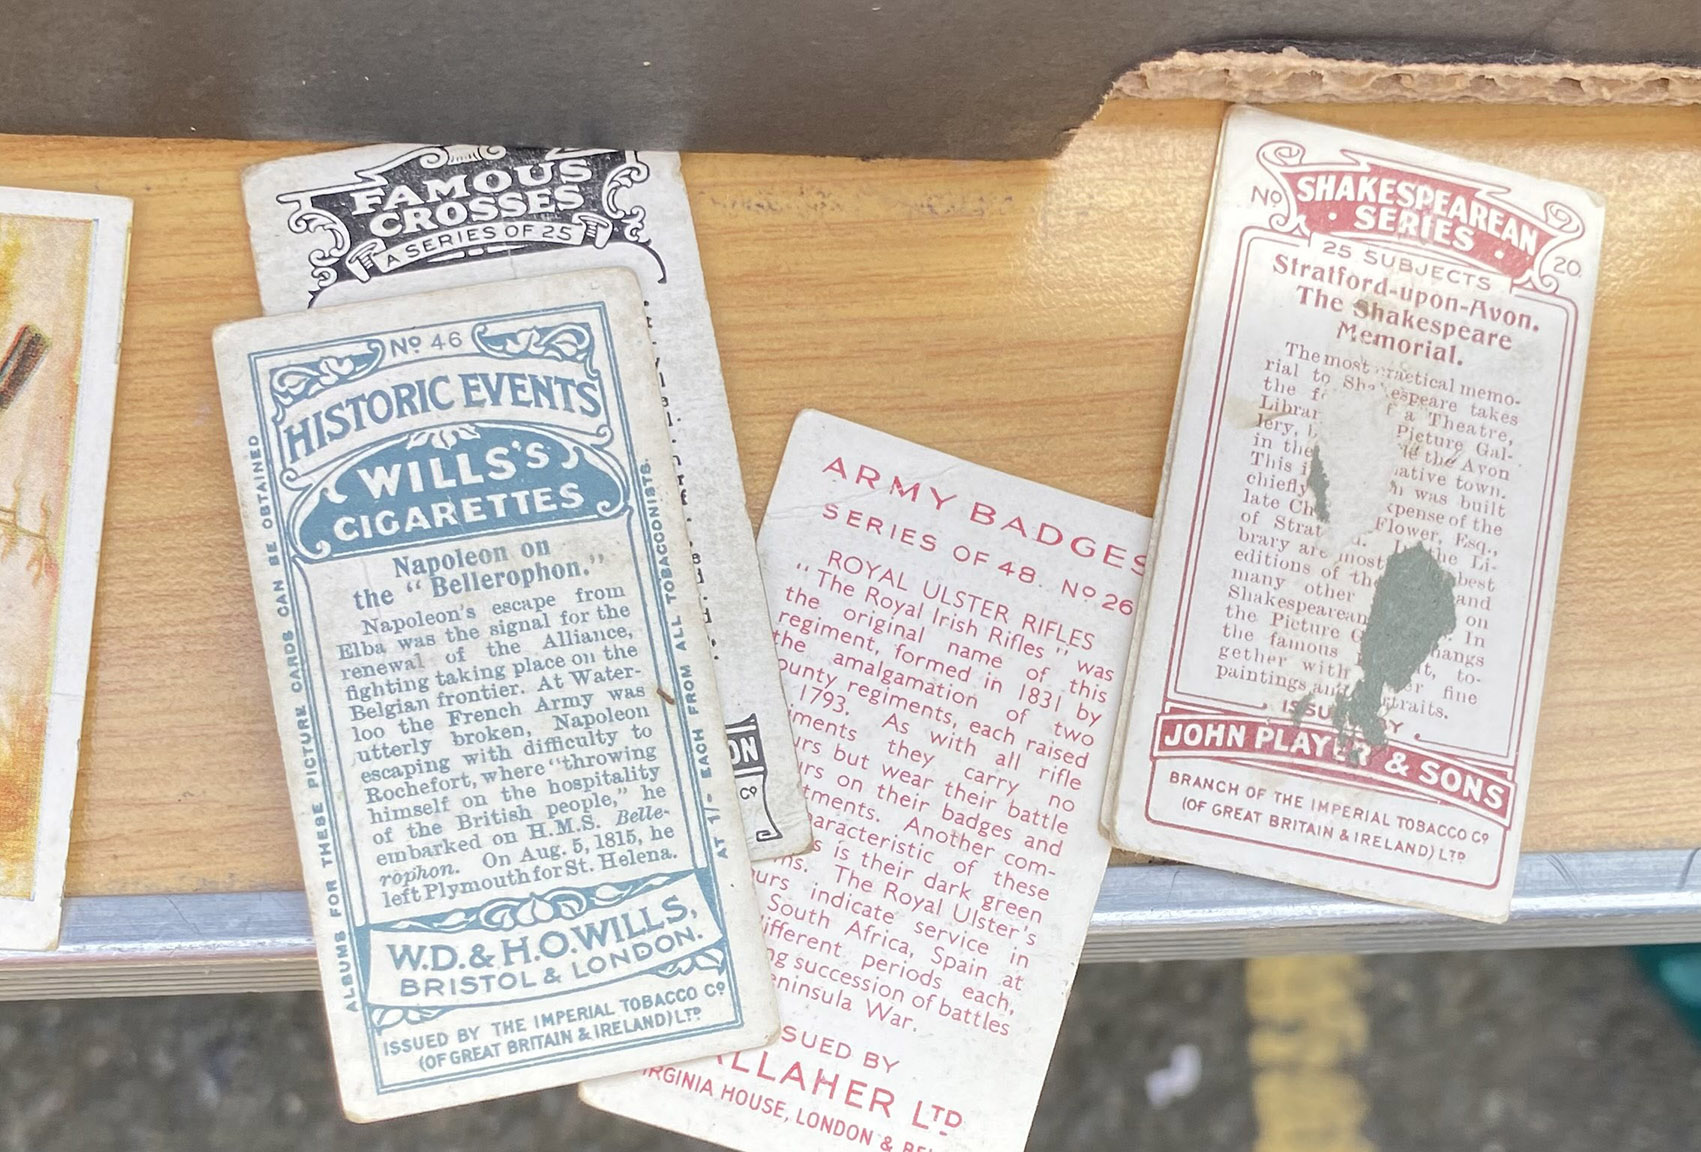 FAMOUS
CROSSES
A SERIES OF 25
ON
Cº
Nº 46
HISTORIC EVENTS
WILLS'S
CIGARETTES
Napoleon on
the "Bellerophon."
Napoleon's escape from
Elba was the signal for the
renewal of the Alliance,
fighting taking place on the
Belgian frontier. At Water-
loo the French Army was
utterly broken, Napoleon
escaping with difficulty to
Rochefort, where "throwing
himself on the hospitality
of the British people," he
embarked on H.M.S. Belle-
rophon. On Aug. 5, 1815, he
left Plymouth for St. Helena.
W.D. & H.O. WILLS,
BRISTOL & LONDON.
ISSUED BY THE IMPERIAL TOBACCO Cº
(OF GREAT BRITAIN & IRELAND) LTD
ALBUMS FOR THESE PICTURE CARDS CAN BE OBTAINED
AT 1/- EACH FROM ALL TOBACCONISTS.
ARMY BADGES
SERIES OF 48. Nº 26
ROYAL ULSTER RIFLES
"The Royal Irish Rifles" was
the original name of this
regiment, formed in 1831 by
the amalgamation of two
ounty regiments, each raised
1793. As with all rifle
iments they carry no
urs but wear their battle
urs on their badges and
tments. Another com-
aracteristic of these
s is their dark green
ms. The Royal Ulster's
urs indicate service in
South Africa, Spain at
ifferent periods each,
ng succession of battles
eninsula War.
SSUED BY
ALLAHER LTD
IRGINIA HOUSE, LONDON & BE
Nº 20
SHAKESPEAREAN
SERIES
25 SUBJECTS
Stratford-upon-Avon.
The Shakespeare
Memorial.
The most practical memo-
rial to Shakespeare takes
the f f a Theatre,
Librar Picture Gal-
lery, the Avon
in the native town.
This i was built
chiefly xpense of the
late Ch Flower, Esq.,
of Strat the Li-
brary are most best
editions of th and
many other on
Shakespearean In
the Picture G hangs
the famous t, to-
gether with r fine
paintings and rtraits.
ISSU BY
JOHN PLAYER & SONS
BRANCH OF THE IMPERIAL TOBACCO Cº
(OF GREAT BRITAIN & IRELAND) LTD